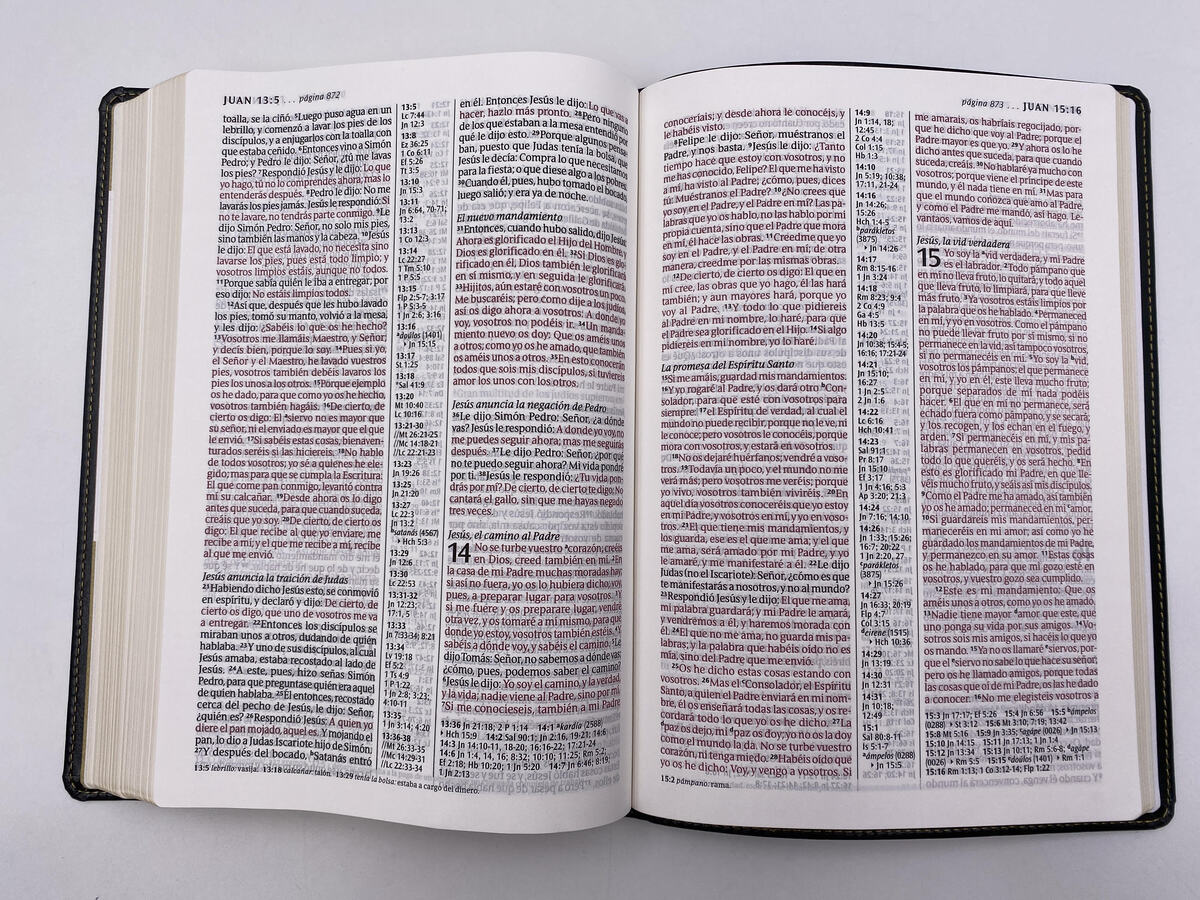 JUAN 13:5 ... página 872
toalla, se la ciñó. ⁵Luego puso agua en un
lebrillo, y comenzó a lavar los pies de los
discípulos, y a enjugarlos con la toalla con
que estaba ceñido. ⁶Entonces vino a Simón
Pedro; y Pedro le dijo: Señor, ¿tú me lavas
los pies? ⁷Respondió Jesús y le dijo: Lo que
yo hago, tú no lo comprendes ahora; mas lo
entenderás después. ⁸Pedro le dijo: No me
lavarás los pies jamás. Jesús le respondió: Si
no te lavare, no tendrás parte conmigo. ⁹Le
dijo Simón Pedro: Señor, no sólo mis pies,
sino también las manos y la cabeza. ¹⁰Jesús
le dijo: El que está lavado, no necesita sino
lavarse los pies, pues está todo limpio; y
vosotros limpios estáis, aunque no todos.
¹¹Porque sabía quién le iba a entregar; por
eso dijo: No estáis limpios todos.
¹²Así que, después que les hubo lavado
los pies, tomó su manto, volvió a la mesa,
y les dijo: ¿Sabéis lo que os he hecho?
¹³Vosotros me llamáis Maestro, y Señor;
y decís bien, porque lo soy. ¹⁴Pues si yo,
el Señor y el Maestro, he lavado vuestros
pies, vosotros también debéis lavaros los
pies los unos a los otros. ¹⁵Porque ejemplo
os he dado, para que como yo os he hecho,
vosotros también hagáis. ¹⁶De cierto, de
cierto os digo: El ᵃsiervo no es mayor que
su señor, ni el enviado es mayor que el que
le envió. ¹⁷Si sabéis estas cosas, bienaven-
turados seréis si las hiciereis. ¹⁸No hablo
de todos vosotros; yo sé a quienes he ele-
gido; mas para que se cumpla la Escritura:
El que come pan conmigo, levantó contra
mí su calcañar. ¹⁹Desde ahora os lo digo
antes que suceda, para que cuando suceda,
creáis que yo soy. ²⁰De cierto, de cierto os
digo: El que recibe al que yo enviare, me
recibe a mí; y el que me recibe a mí, recibe
al que me envió.
Jesús anuncia la traición de Judas
²¹Habiendo dicho Jesús esto, se conmovió
en espíritu, y declaró y dijo: De cierto, de
cierto os digo, que uno de vosotros me va
a entregar. ²²Entonces los discípulos se
miraban unos a otros, dudando de quién
hablaba. ²³Y uno de sus discípulos, al cual
Jesús amaba, estaba recostado al lado de
Jesús. ²⁴A éste, pues, hizo señas Simón
Pedro, para que preguntase quién era aquel
de quien hablaba. ²⁵Él entonces, recostado
cerca del pecho de Jesús, le dijo: Señor,
¿quién es? ²⁶Respondió Jesús: A quien yo
diere el pan mojado, aquél es. Y mojando el
pan, lo dio a Judas Iscariote hijo de Simón.
²⁷Y después del bocado, ᵇSatanás entró
13:5
Lc 7:44
Jn 12:3
13:8
Ez 36:25
1 Co 6:11
Ef 5:26
Tt 3:5
13:10
Jn 15:3
13:11
Jn 6:64, 70-71;
13:2
13:13
1 Co 12:3
13:14
Lc 22:27
1 Tm 5:10
1 P 5:5
13:15
Flp 2:5-7; 3:17
1 P 5:3-5
1 Jn 2:6; 3:16
13:16
ᵃdoúlos (1401)
▸ Jn 15:15
13:17
St 1:25
13:18
Sal 41:9
13:20
Mt 10:40
Lc 10:16
13:21-30
//Mt 26:21-25
//Mc 14:18-21
//Lc 22:21-23
13:23
Jn 19:26
13:25
Jn 21:20
13:27
Lc 22:3
Jn 13:2
ᵇsatanás (4567)
▸ Hch 5:3
13:29
Jn 12:6
13:30
Lc 22:53
13:31-32
Jn 12:23;
17:1, 4-5
13:33
Jn 7:33-34; 8:21
13:34
Lv 19:18
Ef 5:2
1 Ts 4:9
1 P 1:22
1 Jn 2:8; 3:23;
4:10-11
13:35
1 Jn 3:14; 4:20
13:36-38
//Mt 26:33-35
//Mc 14:29-31
//Lc 22:33-34
en él. Entonces Jesús le dijo: Lo que vas a
hacer, hazlo más pronto. ²⁸Pero ninguno
de los que estaban a la mesa entendió por
qué le dijo esto. ²⁹Porque algunos pensa-
ban, puesto que Judas tenía la bolsa, que
Jesús le decía: Compra lo que necesitamos
para la fiesta; o que diese algo a los pobres.
³⁰Cuando él, pues, hubo tomado el bocado,
luego salió; y era ya de noche.
El nuevo mandamiento
³¹Entonces, cuando hubo salido, dijo Jesús:
Ahora es glorificado el Hijo del Hombre, y
Dios es glorificado en él. ³²Si Dios es glo-
rificado en él, Dios también le glorificará
en sí mismo, y en seguida le glorificará.
³³Hijitos, aún estaré con vosotros un poco.
Me buscaréis; pero como dije a los judíos,
así os digo ahora a vosotros: A donde yo
voy, vosotros no podéis ir. ³⁴Un manda-
miento nuevo os doy: Que os améis unos
a otros; como yo os he amado, que también
os améis unos a otros. ³⁵En esto conocerán
todos que sois mis discípulos, si tuviereis
amor los unos con los otros.
Jesús anuncia la negación de Pedro
³⁶Le dijo Simón Pedro: Señor, ¿a dónde
vas? Jesús le respondió: A donde yo voy, no
me puedes seguir ahora; mas me seguirás
después. ³⁷Le dijo Pedro: Señor, ¿por qué
no te puedo seguir ahora? Mi vida pondré
por ti. ³⁸Jesús le respondió: ¿Tu vida pon-
drás por mí? De cierto, de cierto te digo: No
cantará el gallo, sin que me hayas negado
tres veces.
Jesús, el camino al Padre
14 No se turbe vuestro ᵃcorazón; creéis
en Dios, creed también en mí. ²En
la casa de mi Padre muchas moradas hay;
si así no fuera, yo os lo hubiera dicho; voy,
pues, a preparar lugar para vosotros. ³Y
si me fuere y os preparare lugar, vendré
otra vez, y os tomaré a mí mismo, para que
donde yo estoy, vosotros también estéis. ⁴Y
sabéis a dónde voy, y sabéis el camino. ⁵Le
dijo Tomás: Señor, no sabemos a dónde vas;
¿cómo, pues, podemos saber el camino?
⁶Jesús le dijo: Yo soy el camino, y la verdad,
y la vida; nadie viene al Padre, sino por mí.
⁷Si me conocieseis, también a mi Padre
13:36 Jn 21:18; 2 P 1:14 14:1 ᵃkardía (2588)
▸ Hch 15:9 14:2 Sal 90:1; Jn 2:16, 19-21; 14:6
14:3 Jn 14:10-11, 18-20; 16:16-22; 17:21-24
14:6 Jn 1:4, 14, 16; 8:32; 10:10; 11:25; Rm 5:2;
Ef 2:18; Hb 10:20; 1 Jn 5:20 14:7 Jn 6:46; 8:19;
1 Jn 2:13
13:5 lebrillo: vasija. 13:18 calcañar: talón. 13:29 tenía la bolsa: estaba a cargo del dinero.
página 873 ... JUAN 15:16
conoceríais; y desde ahora le conocéis, y
le habéis visto.
⁸Felipe le dijo: Señor, muéstranos el
Padre, y nos basta. ⁹Jesús le dijo: ¿Tanto
tiempo hace que estoy con vosotros, y no
me has conocido, Felipe? El que me ha visto
a mí, ha visto al Padre; ¿cómo, pues, dices
tú: Muéstranos el Padre? ¹⁰¿No crees que
yo soy en el Padre, y el Padre en mí? Las pa-
labras que yo os hablo, no las hablo por mi
propia cuenta, sino que el Padre que mora
en mí, él hace las obras. ¹¹Creedme que yo
soy en el Padre, y el Padre en mí; de otra
manera, creedme por las mismas obras.
¹²De cierto, de cierto os digo: El que en
mí cree, las obras que yo hago, él las hará
también; y aun mayores hará, porque yo
voy al Padre. ¹³Y todo lo que pidiereis
al Padre en mi nombre, lo haré, para que
el Padre sea glorificado en el Hijo. ¹⁴Si algo
pidiereis en mi nombre, yo lo haré.
La promesa del Espíritu Santo
¹⁵Si me amáis, guardad mis mandamientos.
¹⁶Y yo rogaré al Padre, y os dará otro ᵇCon-
solador, para que esté con vosotros para
siempre: ¹⁷el Espíritu de verdad, al cual el
mundo no puede recibir, porque no le ve, ni
le conoce; pero vosotros le conocéis, porque
mora con vosotros, y estará en vosotros.
¹⁸No os dejaré huérfanos; vendré a voso-
tros. ¹⁹Todavía un poco, y el mundo no me
verá más; pero vosotros me veréis; porque
yo vivo, vosotros también viviréis. ²⁰En
aquel día vosotros conoceréis que yo estoy
en mi Padre, y vosotros en mí, y yo en voso-
tros. ²¹El que tiene mis mandamientos, y
los guarda, ése es el que me ama; y el que
me ama, será amado por mi Padre, y yo
le amaré, y me manifestaré a él. ²²Le dijo
Judas (no el Iscariote): Señor, ¿cómo es que
te manifestarás a nosotros, y no al mundo?
²³Respondió Jesús y le dijo: El que me ama,
mi palabra guardará; y mi Padre le amará,
y vendremos a él, y haremos morada con
él. ²⁴El que no me ama, no guarda mis pa-
labras; y la palabra que habéis oído no es
mía, sino del Padre que me envió.
²⁵Os he dicho estas cosas estando con
vosotros. ²⁶Mas el ᶜConsolador, el Espíritu
Santo, a quien el Padre enviará en mi nom-
bre, él os enseñará todas las cosas, y os re-
cordará todo lo que yo os he dicho. ²⁷La
ᵈpaz os dejo, mi ᵈpaz os doy; yo no os la doy
como el mundo la da. No se turbe vuestro
corazón, ni tenga miedo. ²⁸Habéis oído que
yo os he dicho: Voy, y vengo a vosotros. Si
14:9
Jn 1:14, 18;
12:45
2 Co 4:4
Col 1:15
Hb 1:3
14:10
Jn 5:19; 10:38;
17:11, 21-24
14:16
Jn 14:26;
15:26
Hch 1:4-5
ᵇparákletos
(3875)
▸ Jn 14:26
14:17
Rm 8:15-16
1 Jn 3:24
14:18
Rm 8:23; 9:4
2 Co 4:9
Ga 4:5
Hb 13:5
14:20
Jn 10:38; 15:4-5;
16:16; 17:21-24
14:21
Jn 15:10;
16:27
1 Jn 2:5
2 Jn 1:6
14:22
Lc 6:16
Hch 10:41
14:23
Sal 91:1
Pr 8:17
Jn 15:10
Ef 3:17
1 Jn 4:16; 5:3
Ap 3:20; 21:3
14:24
Jn 7:16; 14:10
14:26
Jn 1:33; 15:26;
16:7; 20:22
1 Jn 2:20, 27
ᶜparákletos
(3875)
▸ Jn 15:26
14:27
Jn 16:33; 20:19
Flp 4:7
Col 3:15
ᵈeirene (1515)
▸ Hch 10:36
14:29
Jn 13:19
14:30
Jn 12:31
14:31
Jn 10:18;
12:49
15:1
Sal 80:8-11
Is 5:1-7
ᵃámpelos
(0288)
▸ Jn 15:5
me amarais, os habríais regocijado, por-
que he dicho que voy al Padre; porque el
Padre mayor es que yo. ²⁹Y ahora os lo he
dicho antes que suceda, para que cuando
suceda, creáis. ³⁰No hablaré ya mucho con
vosotros; porque viene el príncipe de este
mundo, y él nada tiene en mí. ³¹Mas para
que el mundo conozca que amo al Padre,
y como el Padre me mandó, así hago. Le-
vantaos, vamos de aquí.
Jesús, la vid verdadera
15 Yo soy la ᵃvid verdadera, y mi Padre
es el labrador. ²Todo pámpano que
en mí no lleva fruto, lo quitará; y todo aquel
que lleva fruto, lo limpiará, para que lleve
más fruto. ³Ya vosotros estáis limpios por
la palabra que os he hablado. ⁴Permaneced
en mí, y yo en vosotros. Como el pámpano
no puede llevar fruto por sí mismo, si no
permanece en la vid, así tampoco vosotros,
si no permanecéis en mí. ⁵Yo soy la ᵇvid,
vosotros los pámpanos; el que permanece
en mí, y yo en él, éste lleva mucho fruto;
porque separados de mí nada podéis
hacer. ⁶El que en mí no permanece, será
echado fuera como pámpano, y se secará;
y los recogen, y los echan en el fuego, y
arden. ⁷Si permanecéis en mí, y mis pa-
labras permanecen en vosotros, pedid
todo lo que queréis, y os será hecho. ⁸En
esto es glorificado mi Padre, en que lle-
véis mucho fruto, y seáis así mis discípulos.
⁹Como el Padre me ha amado, así también
yo os he amado; permaneced en mi ᶜamor.
¹⁰Si guardareis mis mandamientos, per-
maneceréis en mi amor; así como yo he
guardado los mandamientos de mi Padre,
y permanezco en su amor. ¹¹Estas cosas
os he hablado, para que mi gozo esté en
vosotros, y vuestro gozo sea cumplido.
¹²Este es mi mandamiento: Que os
améis unos a otros, como yo os he amado.
¹³Nadie tiene mayor ᵈamor que este, que
uno ponga su vida por sus amigos. ¹⁴Vo-
sotros sois mis amigos, si hacéis lo que yo
os mando. ¹⁵Ya no os llamaré ᵉsiervos, por-
que el ᵉsiervo no sabe lo que hace su señor;
pero os he llamado amigos, porque todas
las cosas que oí de mi Padre, os las he dado
a conocer. ¹⁶No me elegisteis vosotros a
15:3 Jn 17:17; Ef 5:26 15:4 Jn 6:56 15:5 ᵇámpelos
(0288) ▸ St 3:12 15:6 Mt 3:10; 7:19; 13:42
15:8 Mt 5:16 15:9 Jn 3:35; ᶜagápe (0026) ▸ Jn 15:13
15:10 Jn 14:15 15:11 Jn 17:13; 1 Jn 1:4
15:12 Jn 13:34 15:13 Jn 10:11; Rm 5:6-8; ᵈagápe
(0026) ▸ Rm 5:5 15:15 ᵉdoúlos (1401) ▸ Hch 2:18
15:16 Rm 1:13; 1 Co 3:12-14; Flp 1:22
15:2 pámpano: rama.